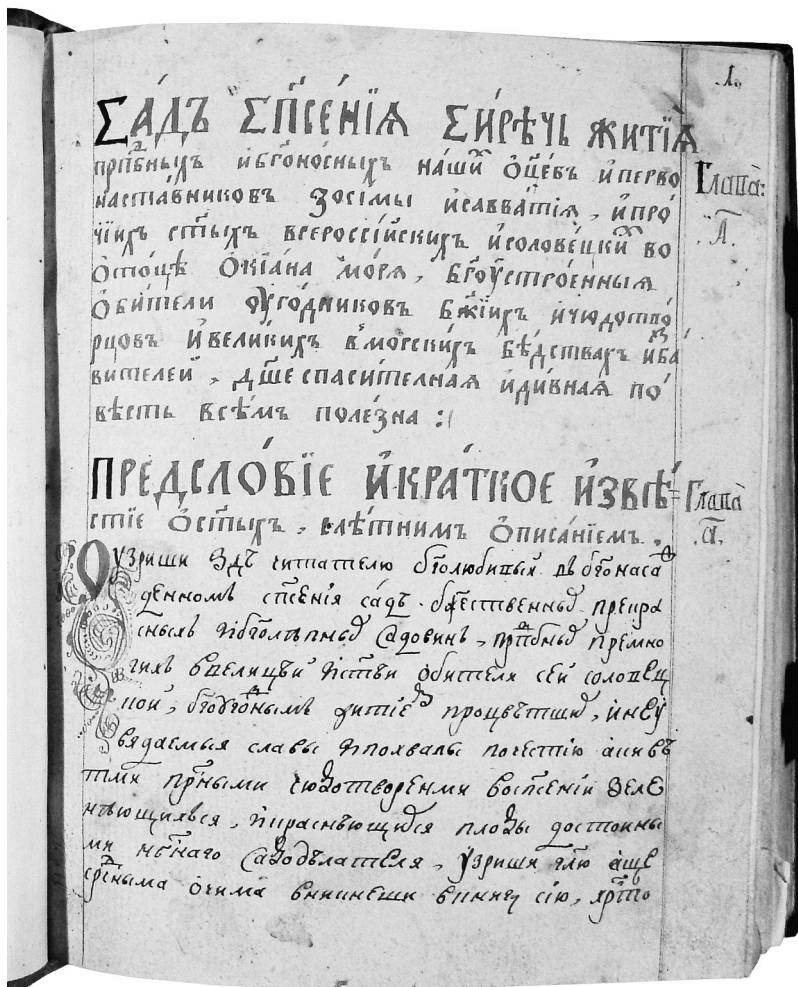 1.
Са́дъ Сп҃се́нїѧ Си́рѣчь житїѧ̀
прпⷣбныхъ и҆бг҃оно́сныхъ на́шиⷯ ѻ҆ц҃е́въ и҆перво
наста́вниковъ зосі́мы и҆савва́тїѧ, и҆про́
чїихъ ст҃ы́хъ всеросі́йскихъ и҆солове́цкиⷯ во
ѻ҆то́цѣ ѻ҆кїа́на мо́рѧ, бг҃оустро́енныѧ
ѻ҆би́тели ᲂуго́дниковъ бж҃їихъ и҆чюдотво́
рцовъ и҆вели́кихъ в̾морски́хъ бѣ́дствахъ и҆ⷥба́
вителеи, дш҃еспаси́телнаѧ и҆ди́внаѧ по́
вѣсть всѣ́мъ поле́зна :
Глава̀:
.А҃.
Предсло́вїе и҆кра́ткое и҆звѣ́
стїе ѻ҆ст҃ы́хъ, слѣ́тнимъ ѻ҆писа́нїемъ.
Глава̀
.а҃.
Оузриши здѣ читателю бг҃олюбивыи въ бг҃онасаⷤ
денномъ сп҃сенїѧ садѣ бжⷭ҇твенныⷯ прекра
сныхъ и҆бг҃олѣпныⷯ садовинъ, прпⷣбныⷯ премно
гихъ ѻбители сеи соловец
кои, бг҃оугоⷣнымъ житїеⷨ процвѣтшиⷯ, и҆неꙋ
вядаемыя славы и҆похвалы почестїю а҆ки въ
тми чюдотворенми воспсенїи зеле
нѣющихся, и҆краснѣющихся плоды достоины
ми нбⷭ҇наго садодѣлателя, ᲂузриши гл҃ю а҆ще
срⷣчныма ѻчима вникнеши вкнигꙋ сїю,